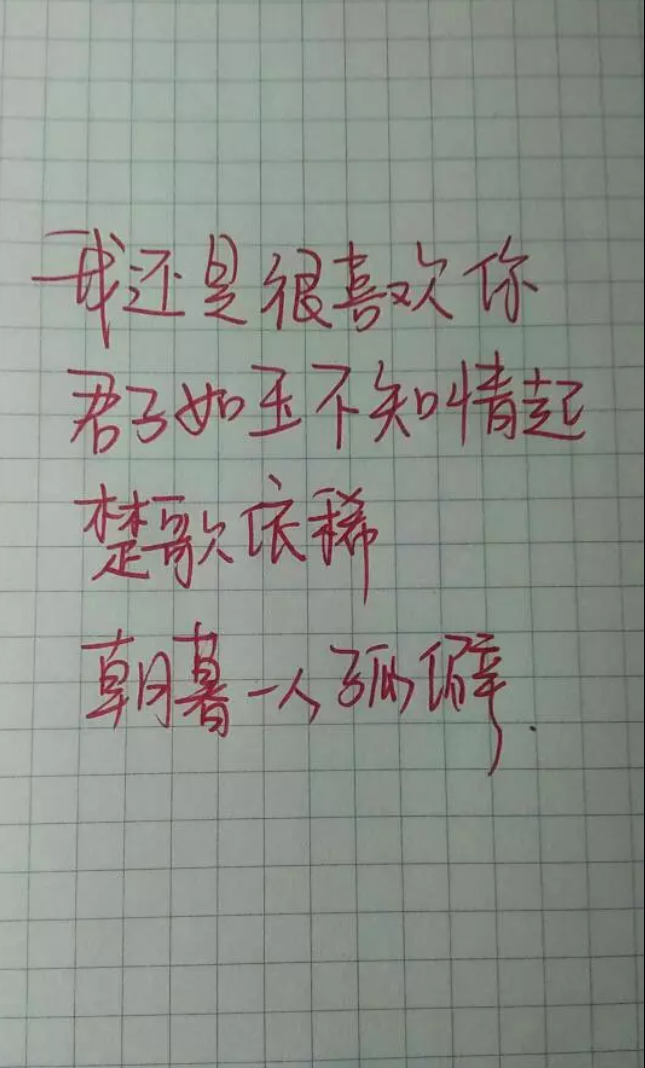 我还是很喜欢你
君子如玉不知情起
楚歌依稀
朝暮一人孤僻.